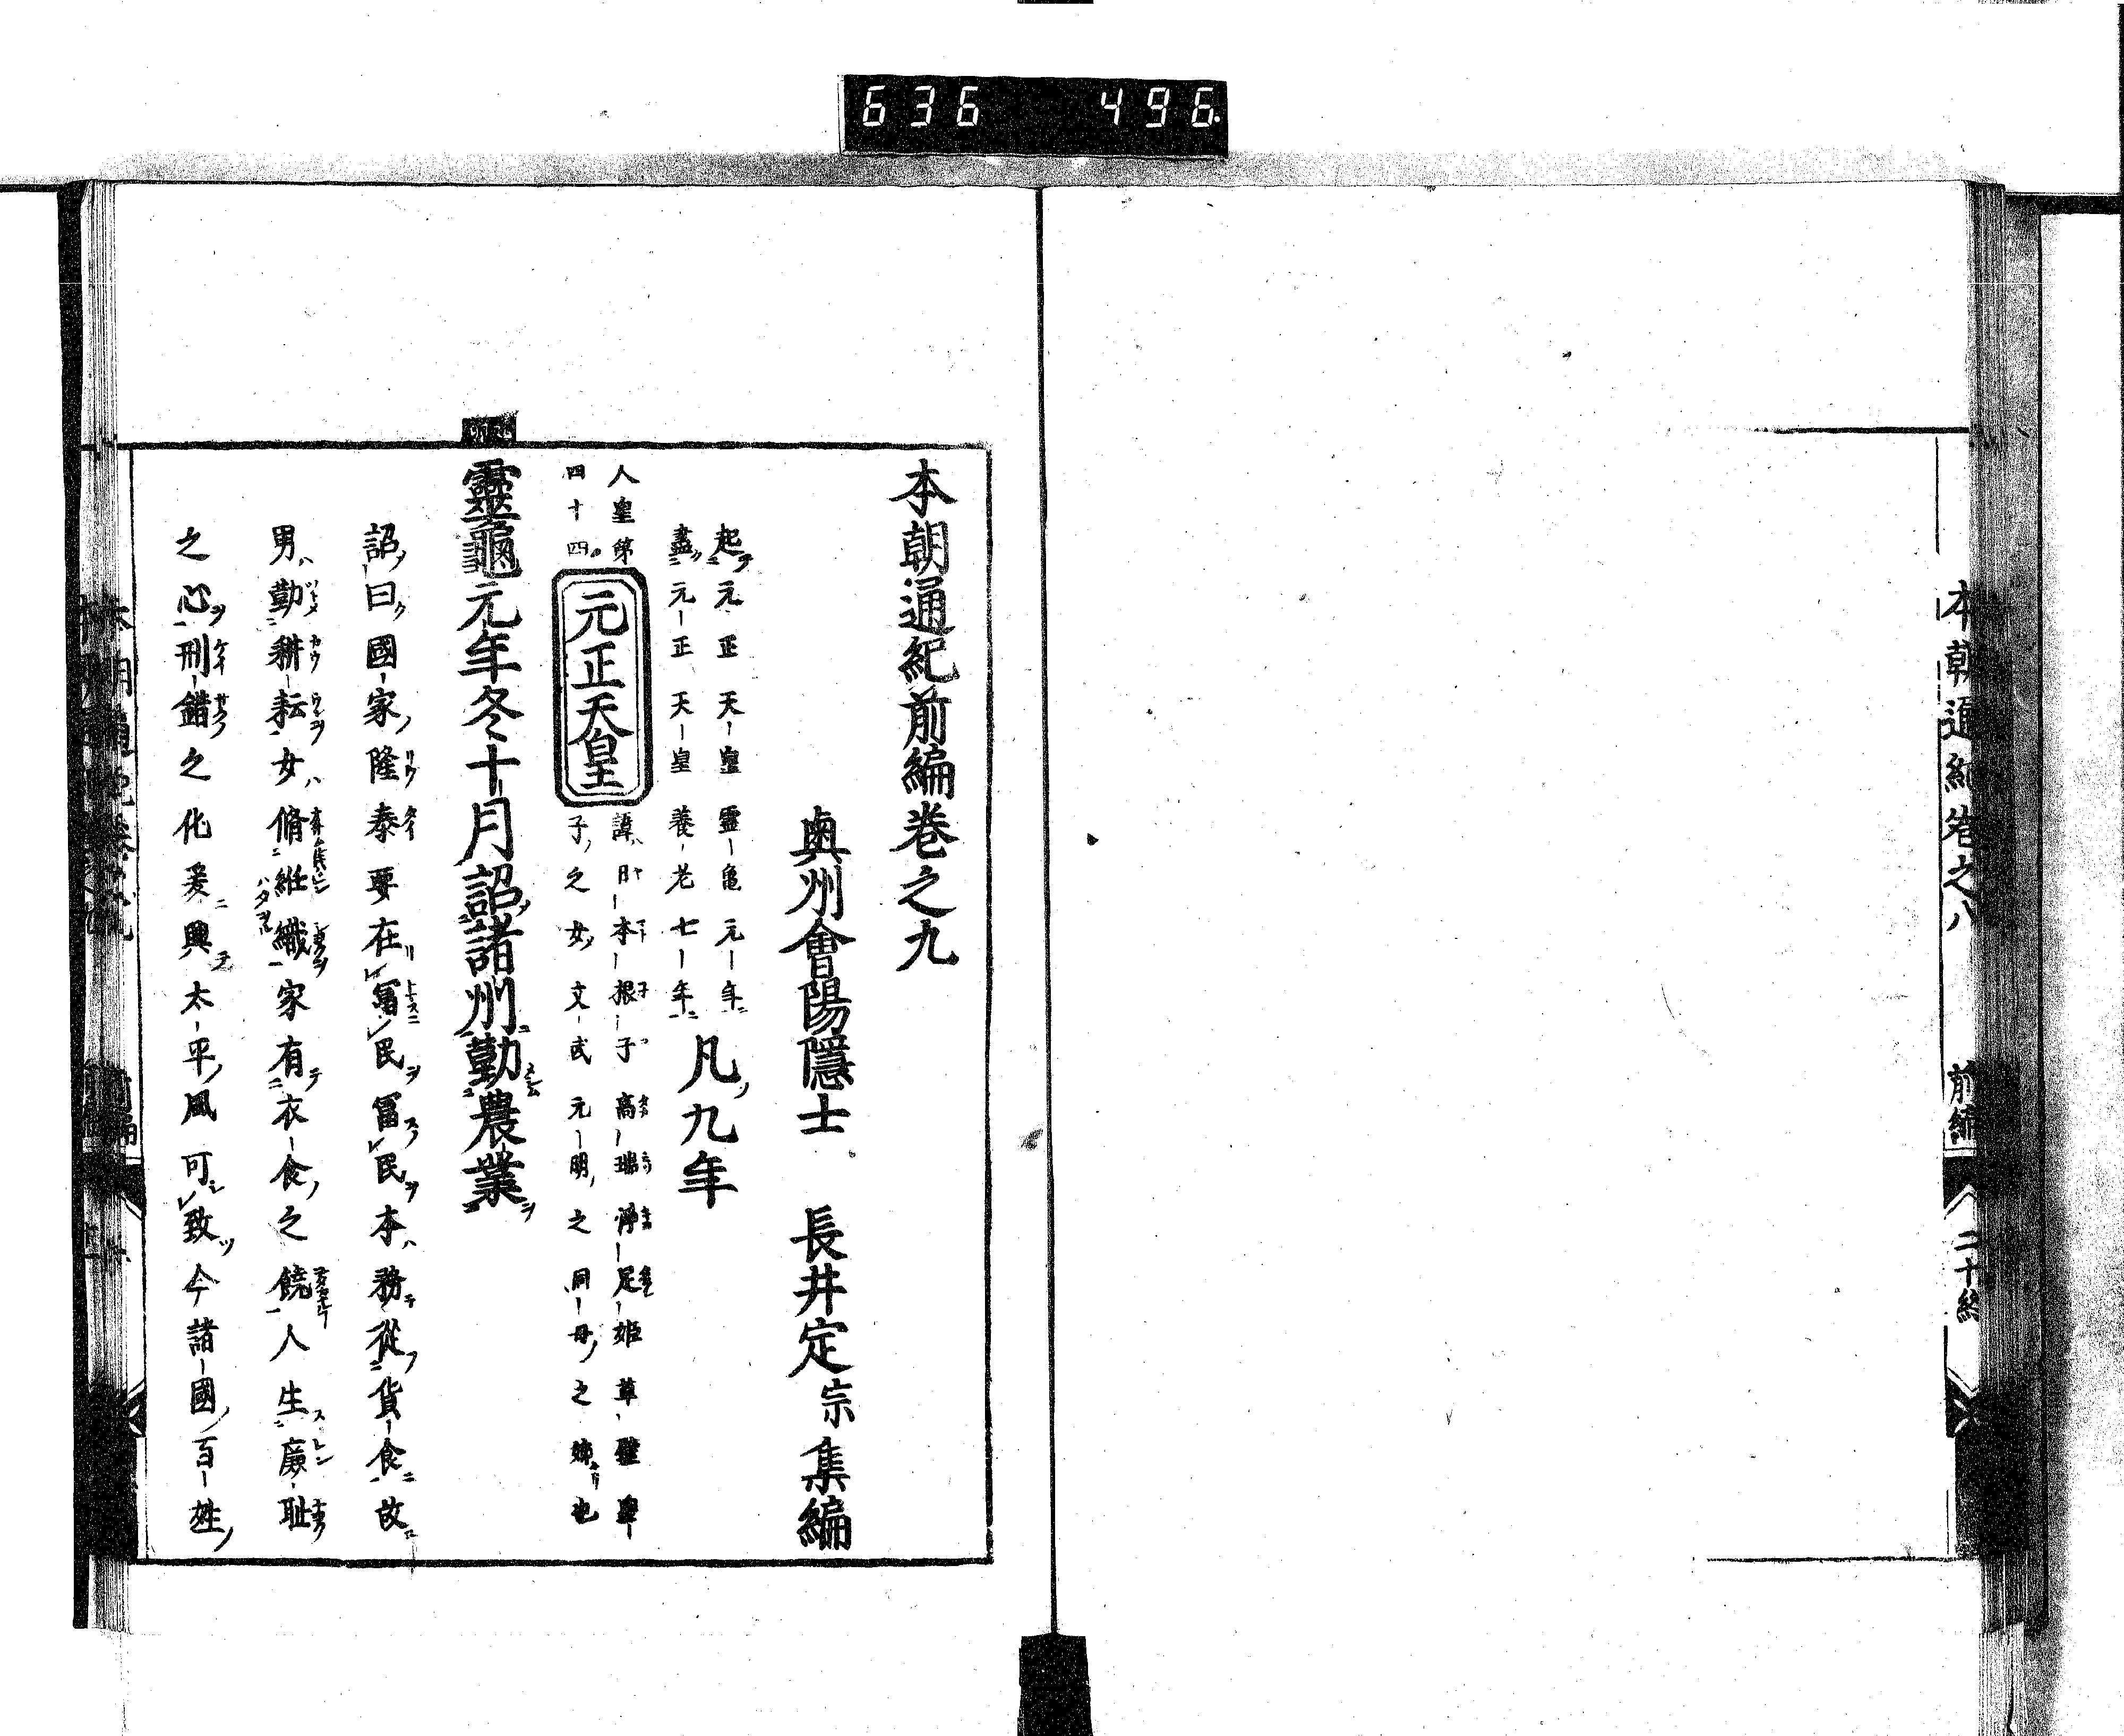 636 496
本朝通紀卷之八 前編 二十終
本朝通紀前編卷之九
奥州會陽隱士 長井定宗集編
起元正天皇靈龜元年
盡元正天皇養老七年 凡九年
人皇第
四十四
元正天皇
諱日本根子高瑞淨足姬草壁皇
子之女文武元明之同母之姊也
靈龜元年冬十月詔諸州勤農業
詔曰國家隆泰要在富民富民本務從貨食故
男勤耕耘女脩紝織家有衣食之饒人生廉耻
之心刑錯之化爰興太平風可致今諸國百姓